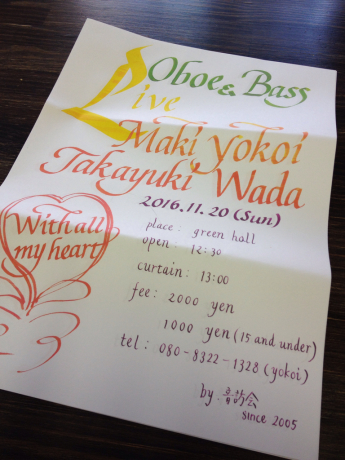 Oboe & Bass
Live
Maki Yokoi
Takayuki Wada
2016.11.20 (Sun)
place: green hall
open: 12:30
curtain: 13:00
fee: 2000 yen
1000 yen (15 and under)
tel: 080-8322-1328 (yokoi)
by
since 2005
With all
my heart